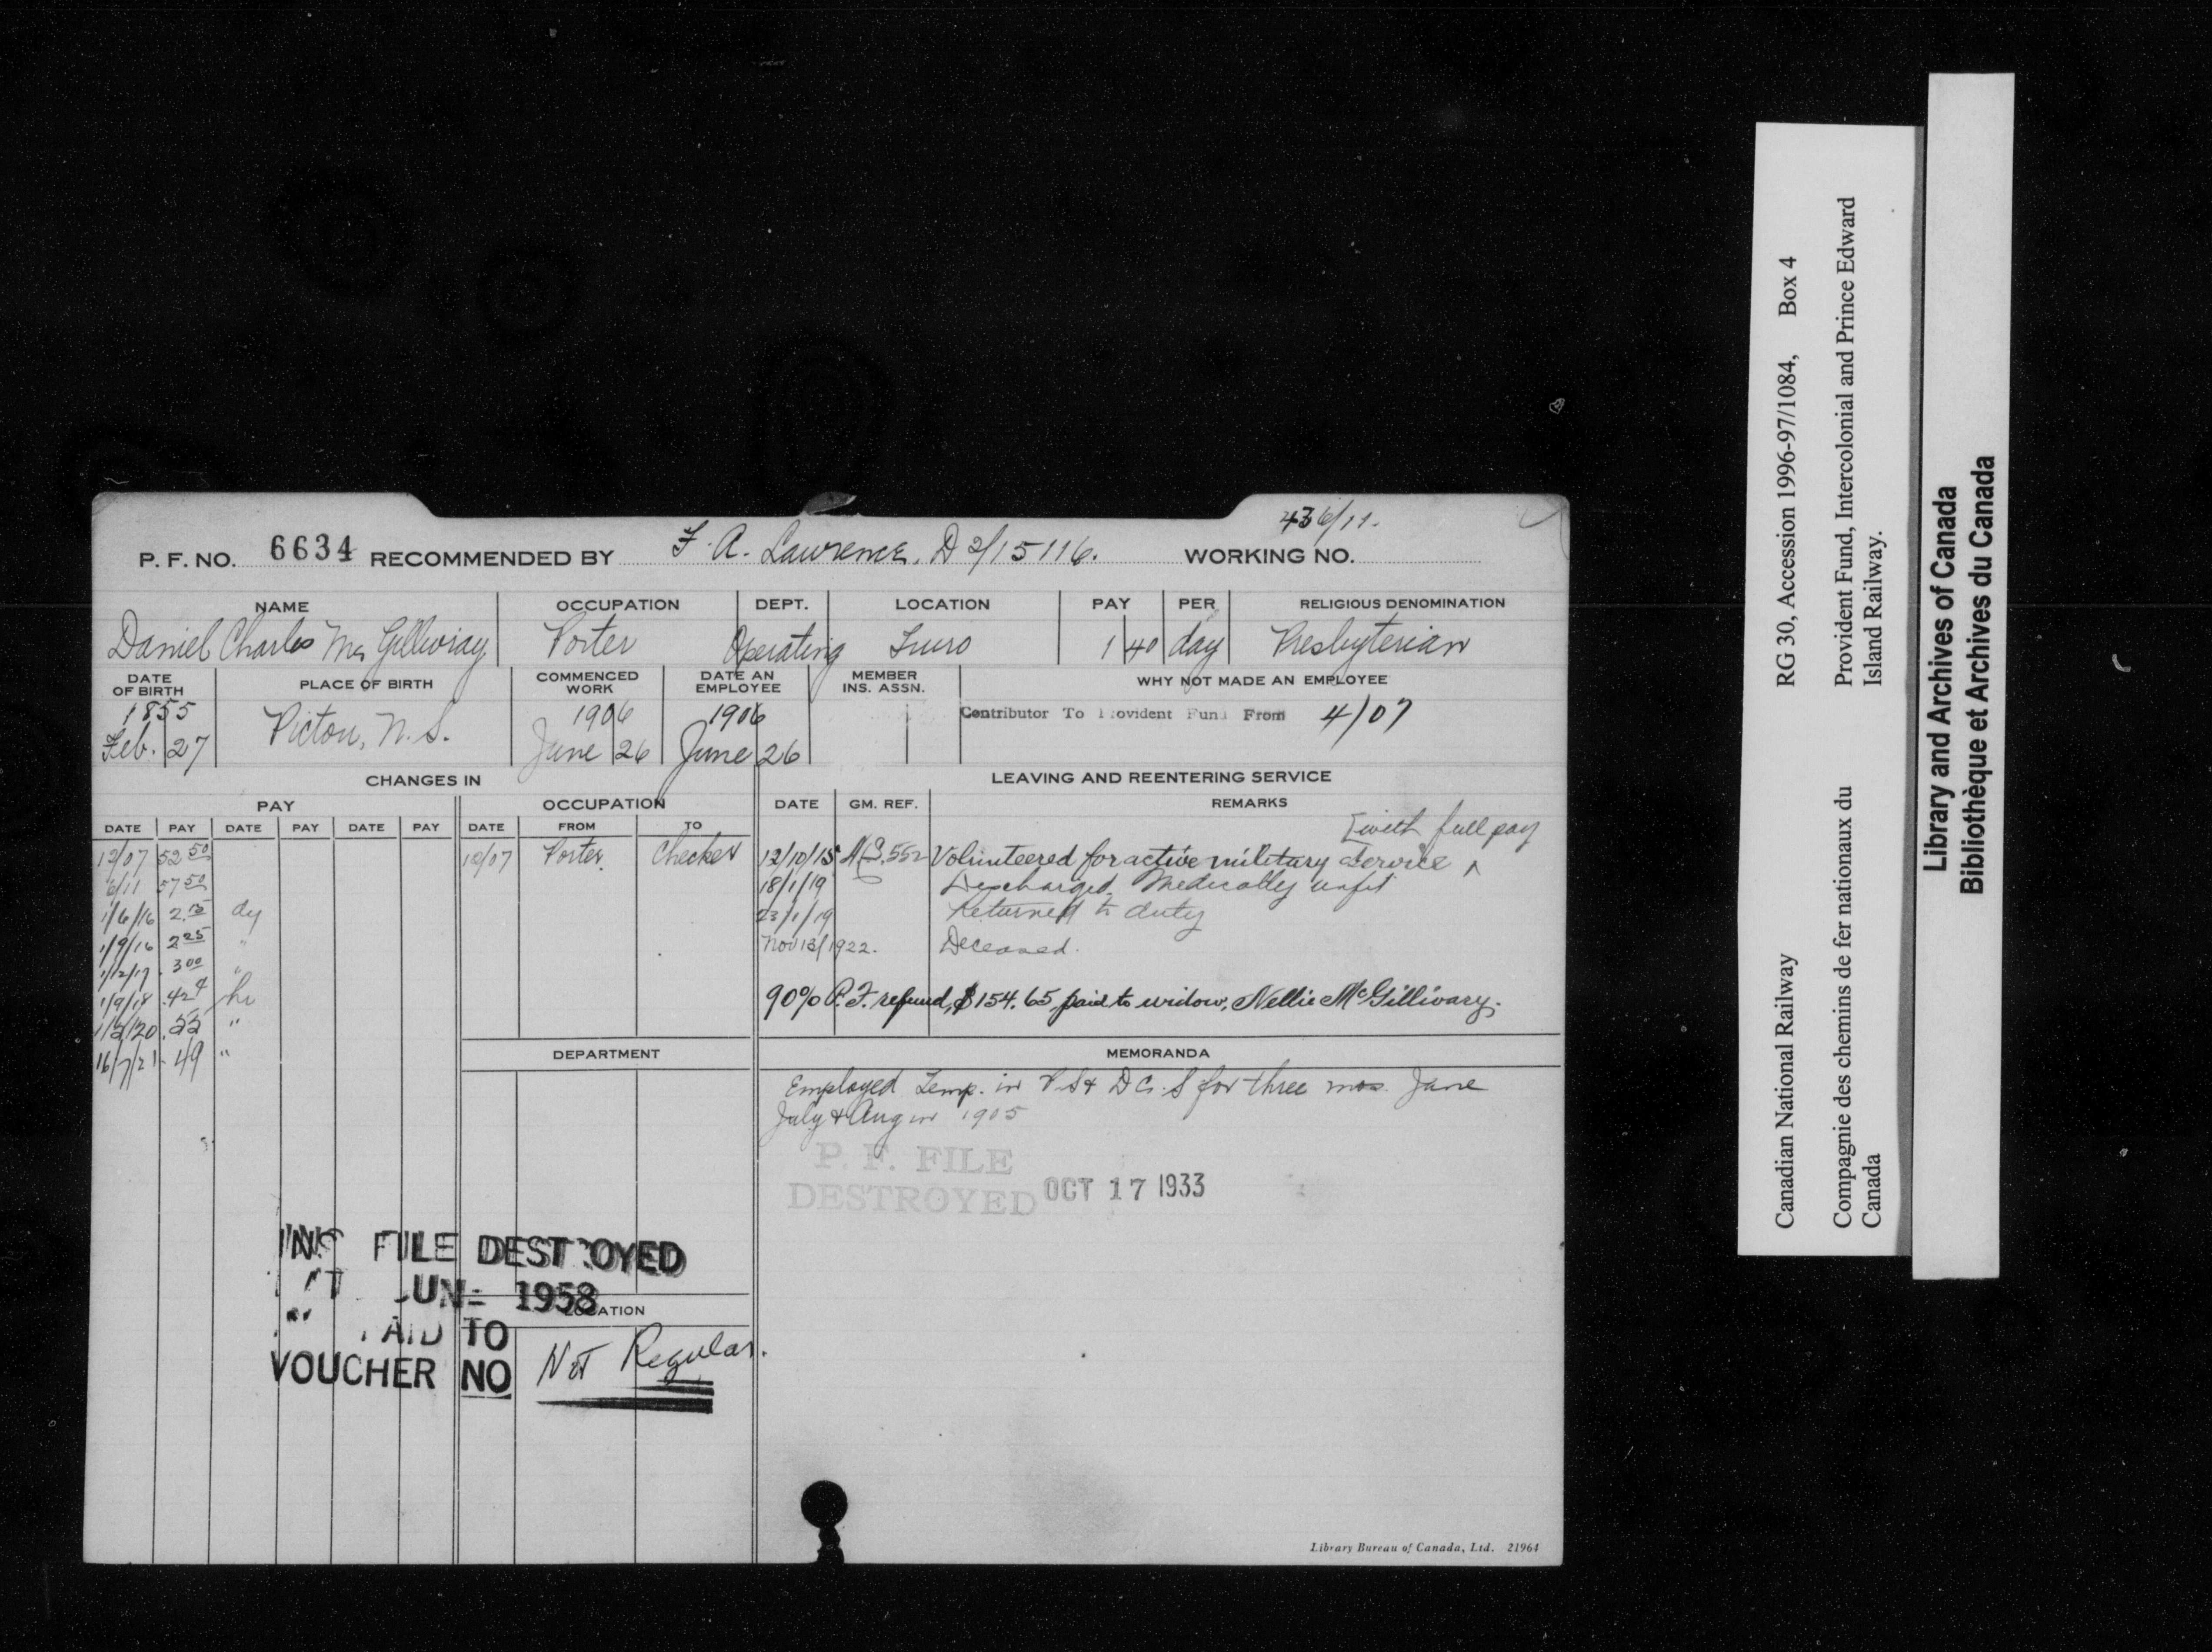 436/11.
P. F. NO. 6634 RECOMMENDED BY F. A. Lawrence, D2/15116. WORKING NO.
NAME OCCUPATION DEPT. LOCATION PAY PER RELIGIOUS DENOMINATION
Daniel Charles Mc Gillivray Porter Operating Truro 1 40 day Presbyterian
DATE OF BIRTH PLACE OF BIRTH COMMENCED WORK DATE AN EMPLOYEE MEMBER INS. ASSN. WHY NOT MADE AN EMPLOYEE
1855 1906 1906 Contributor To Provident Fund From 4/07
Feb. 27 Pictou, N. S. June 26 June 26
CHANGES IN LEAVING AND REENTERING SERVICE
PAY OCCUPATION DATE GM. REF. REMARKS
DATE PAY DATE PAY DATE PAY DATE FROM TO
[with full pay
12/07 52 50 12/07 Porter Checker 12/10/15 552 Volunteered for active military service ^
6/11 57 50 18/1/19 Discharged Medically unfit
1/6/16 dy 23/1/19 Returned to duty
1/9/16 2 25 " Nov 13/1922. Deceased.
1/12/17 3 00 "
1/9/18 hr 90% P. F. refund, $154.65, paid to widow, Nellie McGillivary.
"
16/7/21 .49 "
DEPARTMENT MEMORANDA
Employed Temp. in for three mos June
July & Aug in 1905
P. F. FILE
DESTROYED OCT 17 1933
INS FILE DESTROYED
JUNE 1958
LOCATION
PAID TO
VOUCHER NO
Not Regular.
Library Bureau of Canada, Ltd. 21964
Canadian National Railway RG 30, Accession 1996-97/1084, Box 4
Compagnie des chemins de fer nationaux du Provident Fund, Intercolonial and Prince Edward
Canada Island Railway.
Library and Archives of Canada
Bibliothèque et Archives du Canada